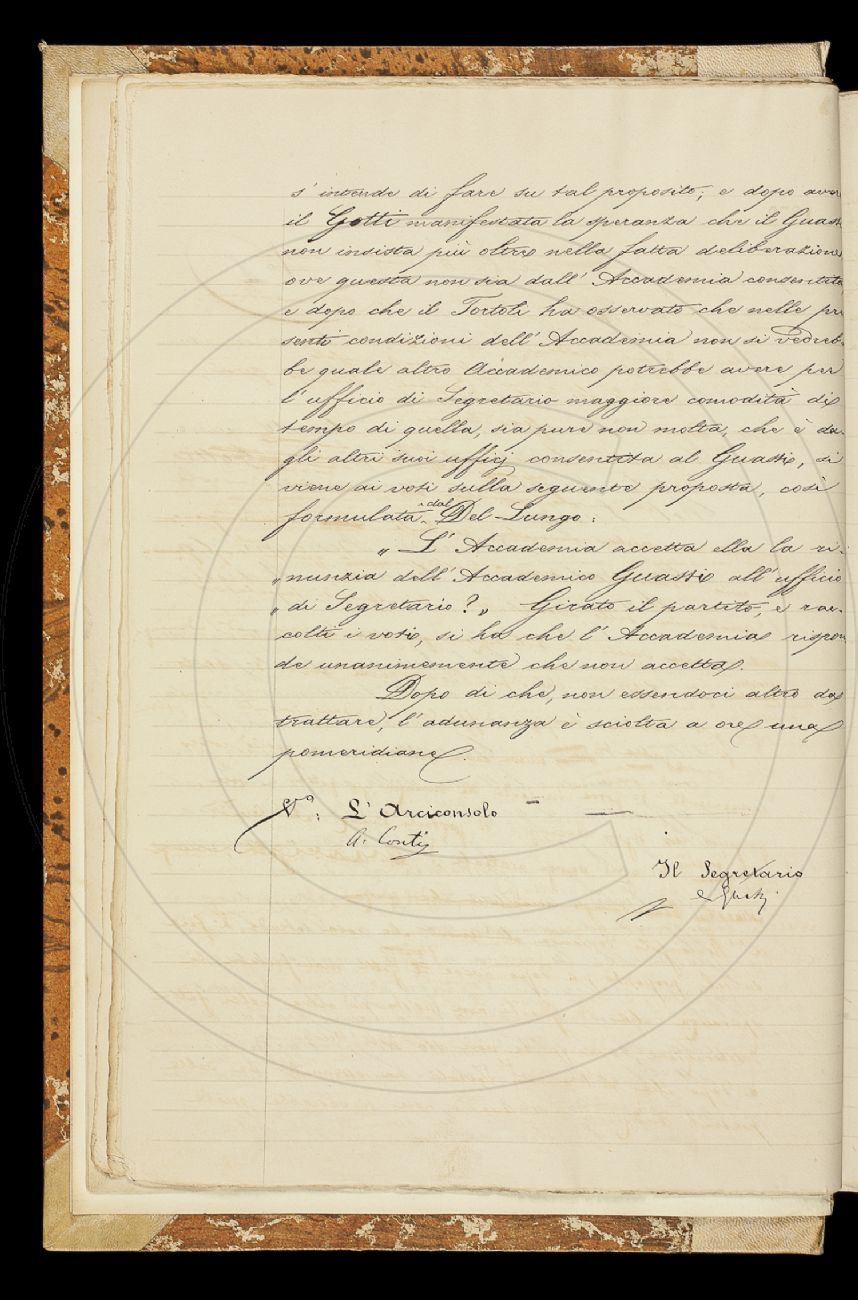 s' intende di fare su tal proposito; e dopo aver
il Gotti manifestata la speranza che il Guasti
non insista più oltre nella fatta deliberazione
ove questa non sia dall' Accademia consentita,
e dopo che il Tortoli ha osservato che nelle pre
senti condizioni dell' Accademia non si vedreb-
be quale altro Accademico potrebbe avere per
l' ufficio di Segretario maggiore comodità di
tempo di quella, sia pure non molta, che è da-
gli altri suoi ufficj consentita al Guasti, si
viene ai voti sulla seguente proposta, così
formulata dal Del Lungo:
„ L' Accademia accetta ella la ri-
„ nunzia dell' Accademico Guasti all' ufficio
„ di Segretario? „ Girato il partito, e rac-
colti i voti, si ha che l' Accademia rispon
de unanimemente che non accetta.
Dopo di che, non essendoci altro da
trattare, l' adunanza è sciolta a ore una
pomeridiane.
V°: L' Arciconsolo
A. Conti
Il Segretario